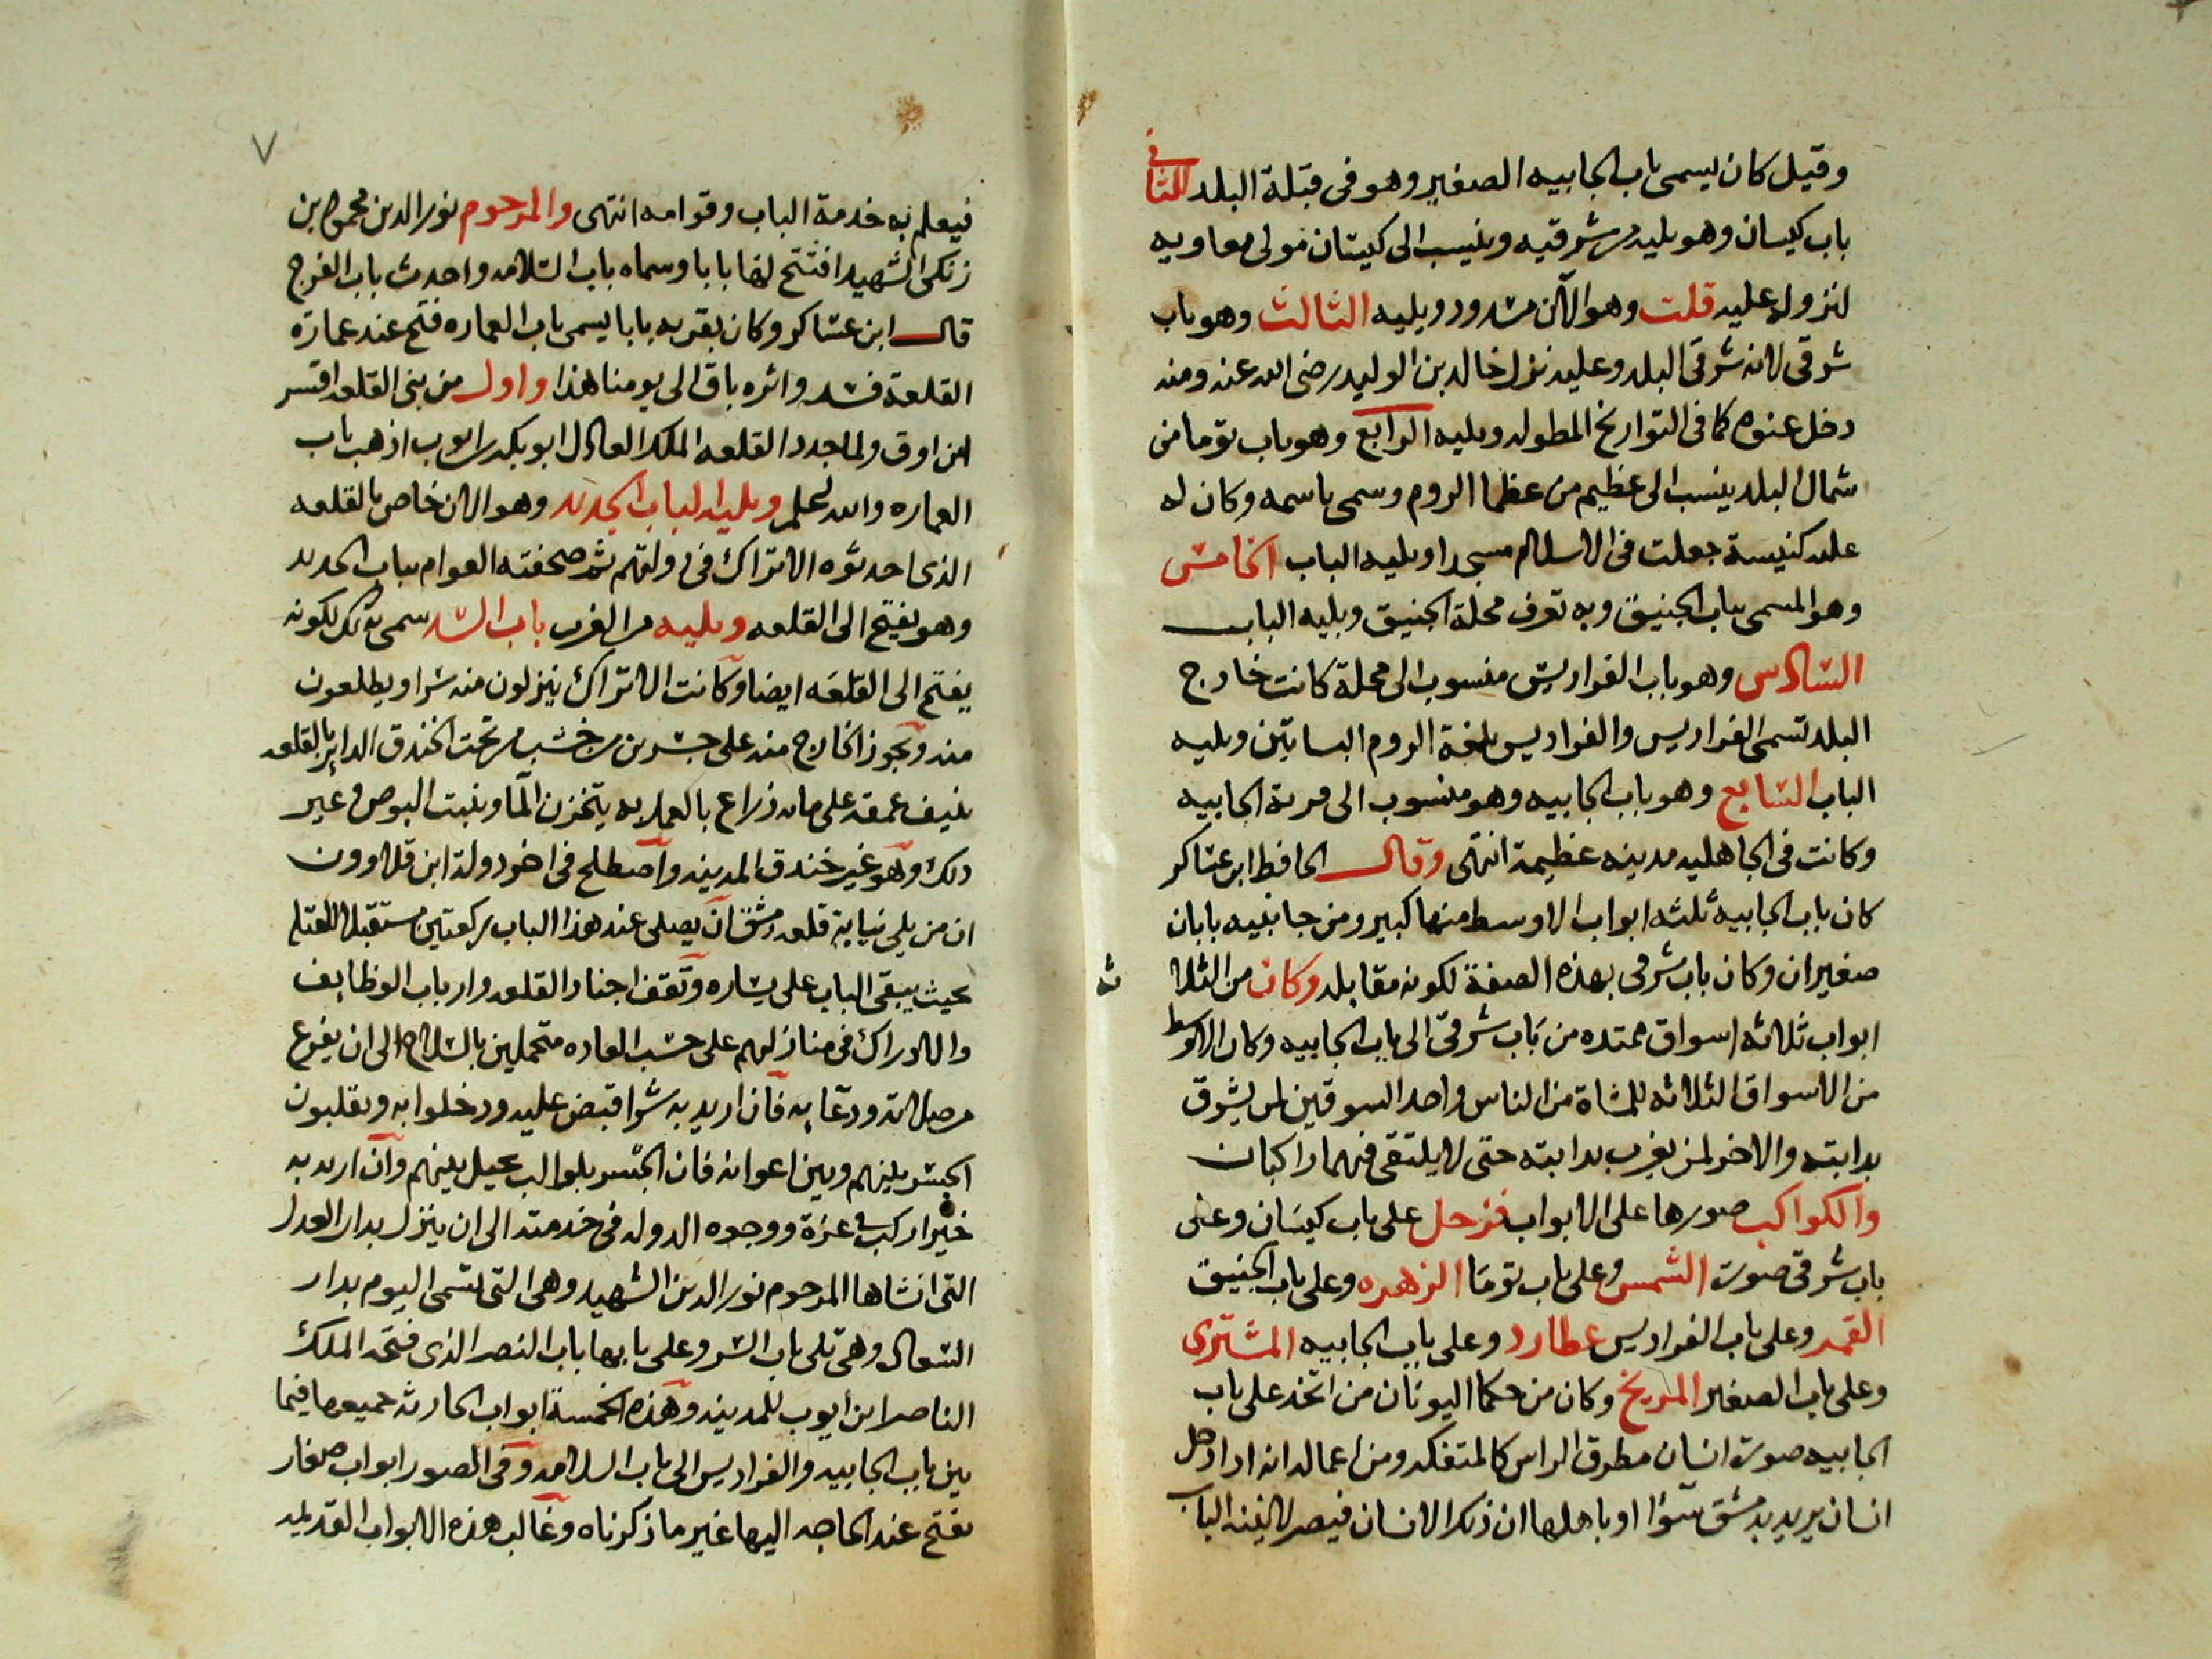 وقيل كان يسمى باب الجابيه الصغير وهو فى قبلة البلد الثانى
باب كيسان وهو يليه من شرقيه وينسب الى كيسان مولى معاويه
لنزوله عليه قلت وهو الآن مسدود ويليه الثالث وهو باب
شرقى لانه شرقى البلد وعليه نزل خالد بن الوليد رضى الله عنه ومنه
دخل عنوه كما فى التواريخ المطوله ويليه الرابع وهو باب توما من
شمال البلد ينسب الى عظيم من عظما الروم وسمى باسمه وكان له
عليه كنيسة جعلت فى الاسلام مسجدا ويليه الباب الخامس
وهو المسمى بباب الجنيق وبه تعرف محلة الجنيق ويليه الباب
السادس وهو باب الفراديس منسوب الى محلة كانت خارج
البلد تسمى الفراديس والفراديس بلغة الروم البساتين ويليه
الباب السابع وهو باب الجابيه وهو منسوب الى قرية الجابيه
وكانت فى الجاهليه مدينه عظيمة انتهى وقال الحافظ ابن عساكر
كان باب الجابيه ثلثه ابواب الاوسط منها كبير ومن جانبيه بابان
صغيران وكان باب شرقى بهذه الصفة لكونه مقابله وكان من الثلا
ثه
ابواب ثلاثه اسواق ممتده من باب شرقى الى باب الجابيه وكان الاوسط
من الاسواق الثلاثه للمشاة من الناس واحد السوقين لمن يشرق
بدابته والاخر لمن يغرب بدابته حتى لا يلتقى فيهما راكبان
والكواكب صورها على الابواب فزحل على باب كيسان وعلى
باب شرقى صورت الشمس وعلى باب توما الزهره وعلى باب الجنيق
القمر وعلى باب الفراديس عطارد وعلى باب الجابيه المشترى
وعلى باب الصغير المريخ وكان من حكما اليونان من اتخذ على باب
الجابيه صورت انسان مطرق الراس كالمتفكر ومن اعماله انه اذا دخل
انسان يريد بدمشق سؤا او باهلها ان ذلك الانسان فيصر لاينه الباب
٧
فيعلم به خدمة الباب وقوامه انتهى والمرحوم نور الدين محمود بن
زنكى الشهيد افتتح لها بابا وسماه باب السلامه واحدث باب الفرج
قال ابن عساكر وكان بقربه بابا يسمى باب العماره فتح عند عمارة
القلعة فسد واثره باق الى يومنا هذا واول من بنى القلعه اقسر
ابن اوق ولما جدد القلعه الملك العادل ابو بكر بن ايوب اذهب باب
العماره والله اعلم ويليه الباب الحديد وهو الان خاص بالقلعه
الذى احدثوه الاتراك فى دولتهم ثم صحفته العوام بباب الحديد
وهو يفتح الى القلعه ويليه من الغرب باب السر سمى بذلك لكونه
يفتح الى القلعه ايضا وكانت الاتراك ينزلون منه سرا ويطلعون
منه ويجوز الخارج منه على جسرين من خشب من تحت الخندق الداير بالقلعه
ينيف عمقه على مايه ذراع بالعمل به يتخزن الما وينبت البوص وغير
ذلك وهو غير خندق المدينه واصطلح فى اخر دولة ابن قلاوون
ان من يلى نيابة قلعه دمشق ان يصلى عند هذا الباب ركعتين مستقبلا للقبله
بحيث يبقى الباب على يساره وتقف اجناد القلعه وارباب الوظايف
والادراك فى منازلهم على حسب العاده متحملين بالسلاح الى ان يفرغ
من صلاته ودعايه فان اريد به شرا قبض عليه ودخلوا به ويقلبون
الجسر بينهم وبين اعوانه فان الجسر بلوالب يحيل بينهم وان اريد به
خيرا ركب فى عزة ووجوه الدوله فى خدمته الى ان ينزل بدار العدل
التى انشاها المرحوم نور الدين الشهيد وهى التى تسمى اليوم بدار
السعاده وهى تلى باب السر وعلى بابها باب النصر الذى فتحه الملك
الناصر ابن ايوب للمدينه وهذه الخمسة ابواب الحادثه جميعها فيما
بين باب الجابيه والفراديس الى باب السلامه وفى الصور ابواب صغار
تفتح عند الحاجه اليها غير ما ذكرناه وغالب هذه الابواب القديمه